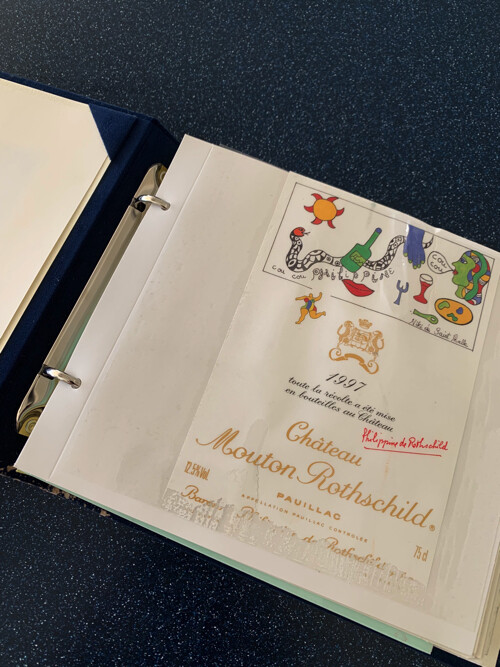 cou
cou
Philippine
cou
cou
Niki de Saint Phalle
1997
toute la récolte a été mise
en bouteilles au Château
Philippine de Rothschild
Château
Mouton Rothschild®
PAUILLAC
APPELLATION PAUILLAC CONTROLÉE
12.5%Vol.
75 cl
de Rothschild